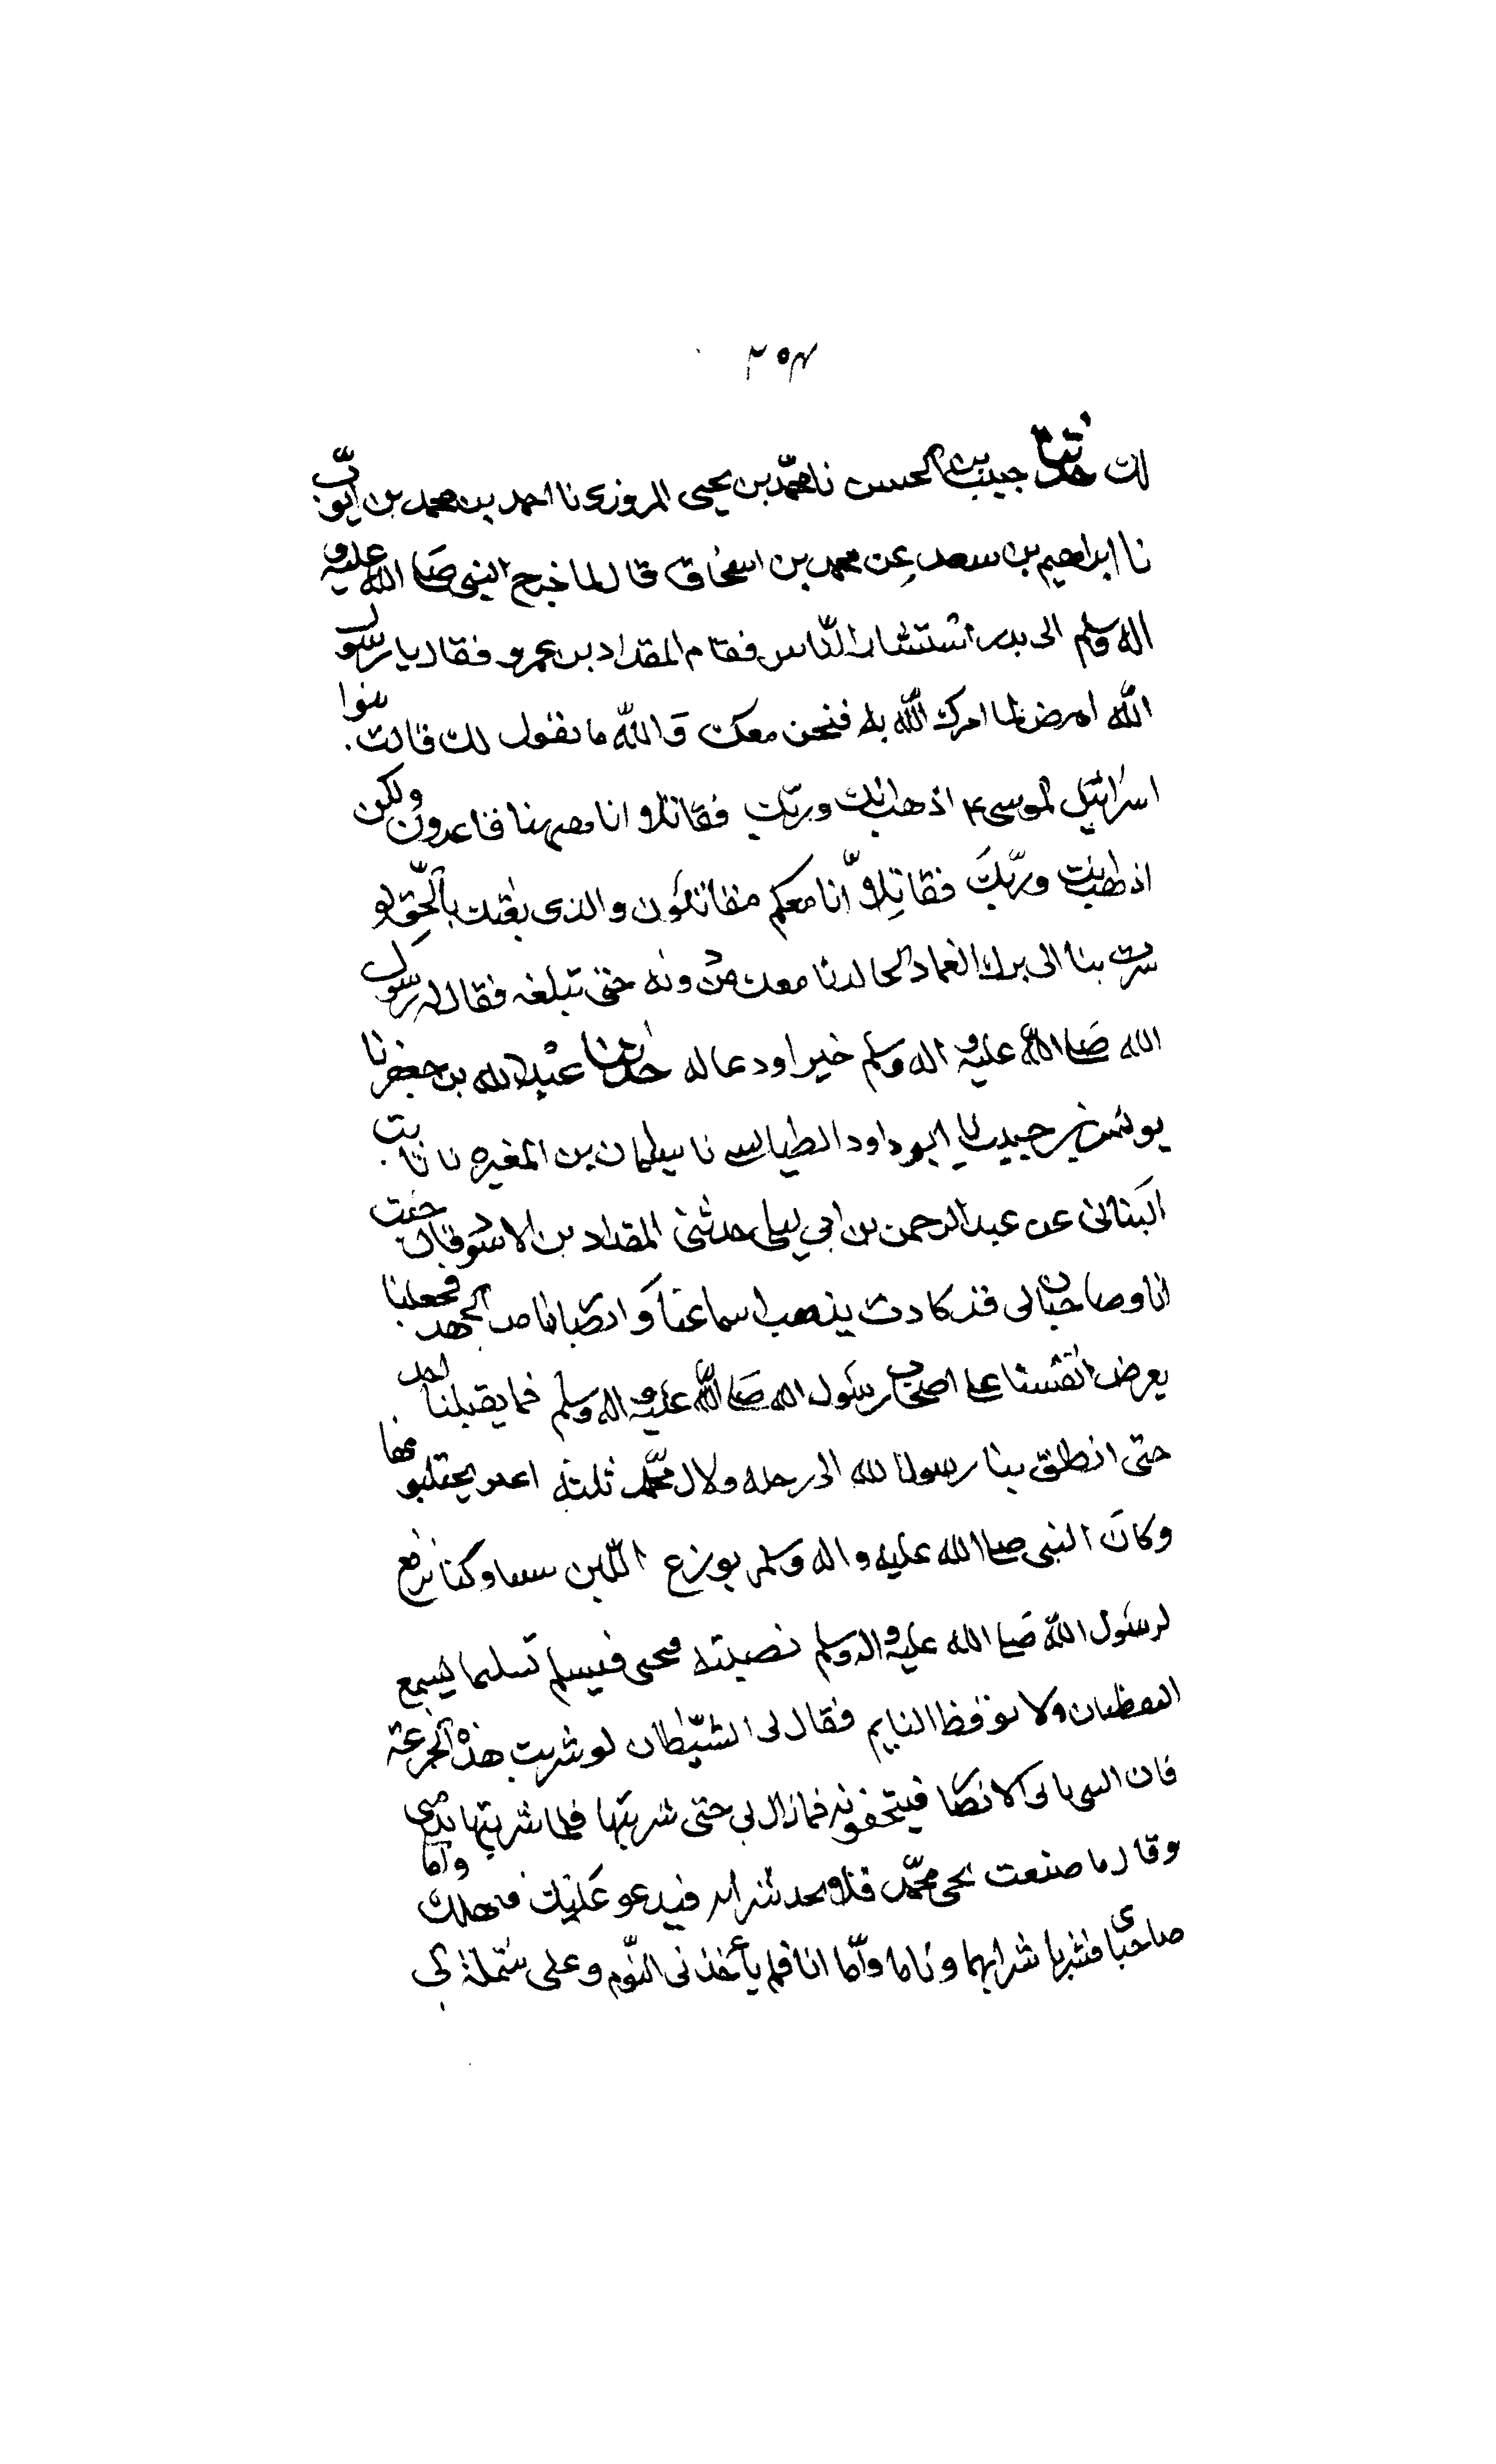 ٢٥٤
لك حدثنا حبيب بن الحسن نا محمد بن يحيى المروزى نا احمد بن محمد بن ايوب
نا ابراهيم بن سعد عن محمد بن اسحاق قال لما خرج النبى صلى الله عليه و
اله وسلم الى بدر استشار الناس فقام المقداد بن عمرو فقال يا رسول
الله امض لما امرك الله به فنحن معك والله ما نقول لك قالت بنوا
اسرائيل لموسى ع اذهب انت وربك فقاتلا انا ههنا قاعدون ولكن
اذهب انت وربك فقاتلا انا معكم مقاتلون والذى بعثك بالحق لو
سرت بنا الى برك الغماد لجالدنا معك من دونه حتى تبلغه فقال له رسول
الله صلى الله عليه و اله وسلم خيرا ودعا له حدثنا عبد الله بن جعفر نا
يونس بن حبيب نا ابو داود الطيالسى نا سليمان بن المغيره نا ثابت
البنانى عن عبد الرحمن بن ابي ليلى حدثنى المقداد بن الاسود قال جئت
انا وصاحبان لى قد كادت يذهب اسماعنا و ابصارنا من الجهد فجعلنا
يعرض انفسنا على اصحاب رسول الله صلى الله عليه و اله وسلم فما يقبلنا احد
حتى انطلق بنا رسول الله الى رحله ولال محمد ثلثة اعنز يحتلبونها
وكان النبى صلى الله عليه و اله وسلم يوزع اللبن بيننا وكنا نرفع
لرسول الله صلى الله عليه و اله وسلم نصيبه فيجى فيسلم تسليما يسمع
اليقظان ولا يوقظ النايم فقال لى الشيطان لو شربت هذه الجرعة
فان النبى ياتى الانصار فيتحفونه فمازال بى حتى شربتها فلما شربتها ندمنى
وقال ما صنعت يجى محمد فلا يجد شرابه فيدعو عليك فتهلك واما
صاحباى فشربا شرابهما وناما واما انا فلم يأخذنى النوم وعلى شملة لى